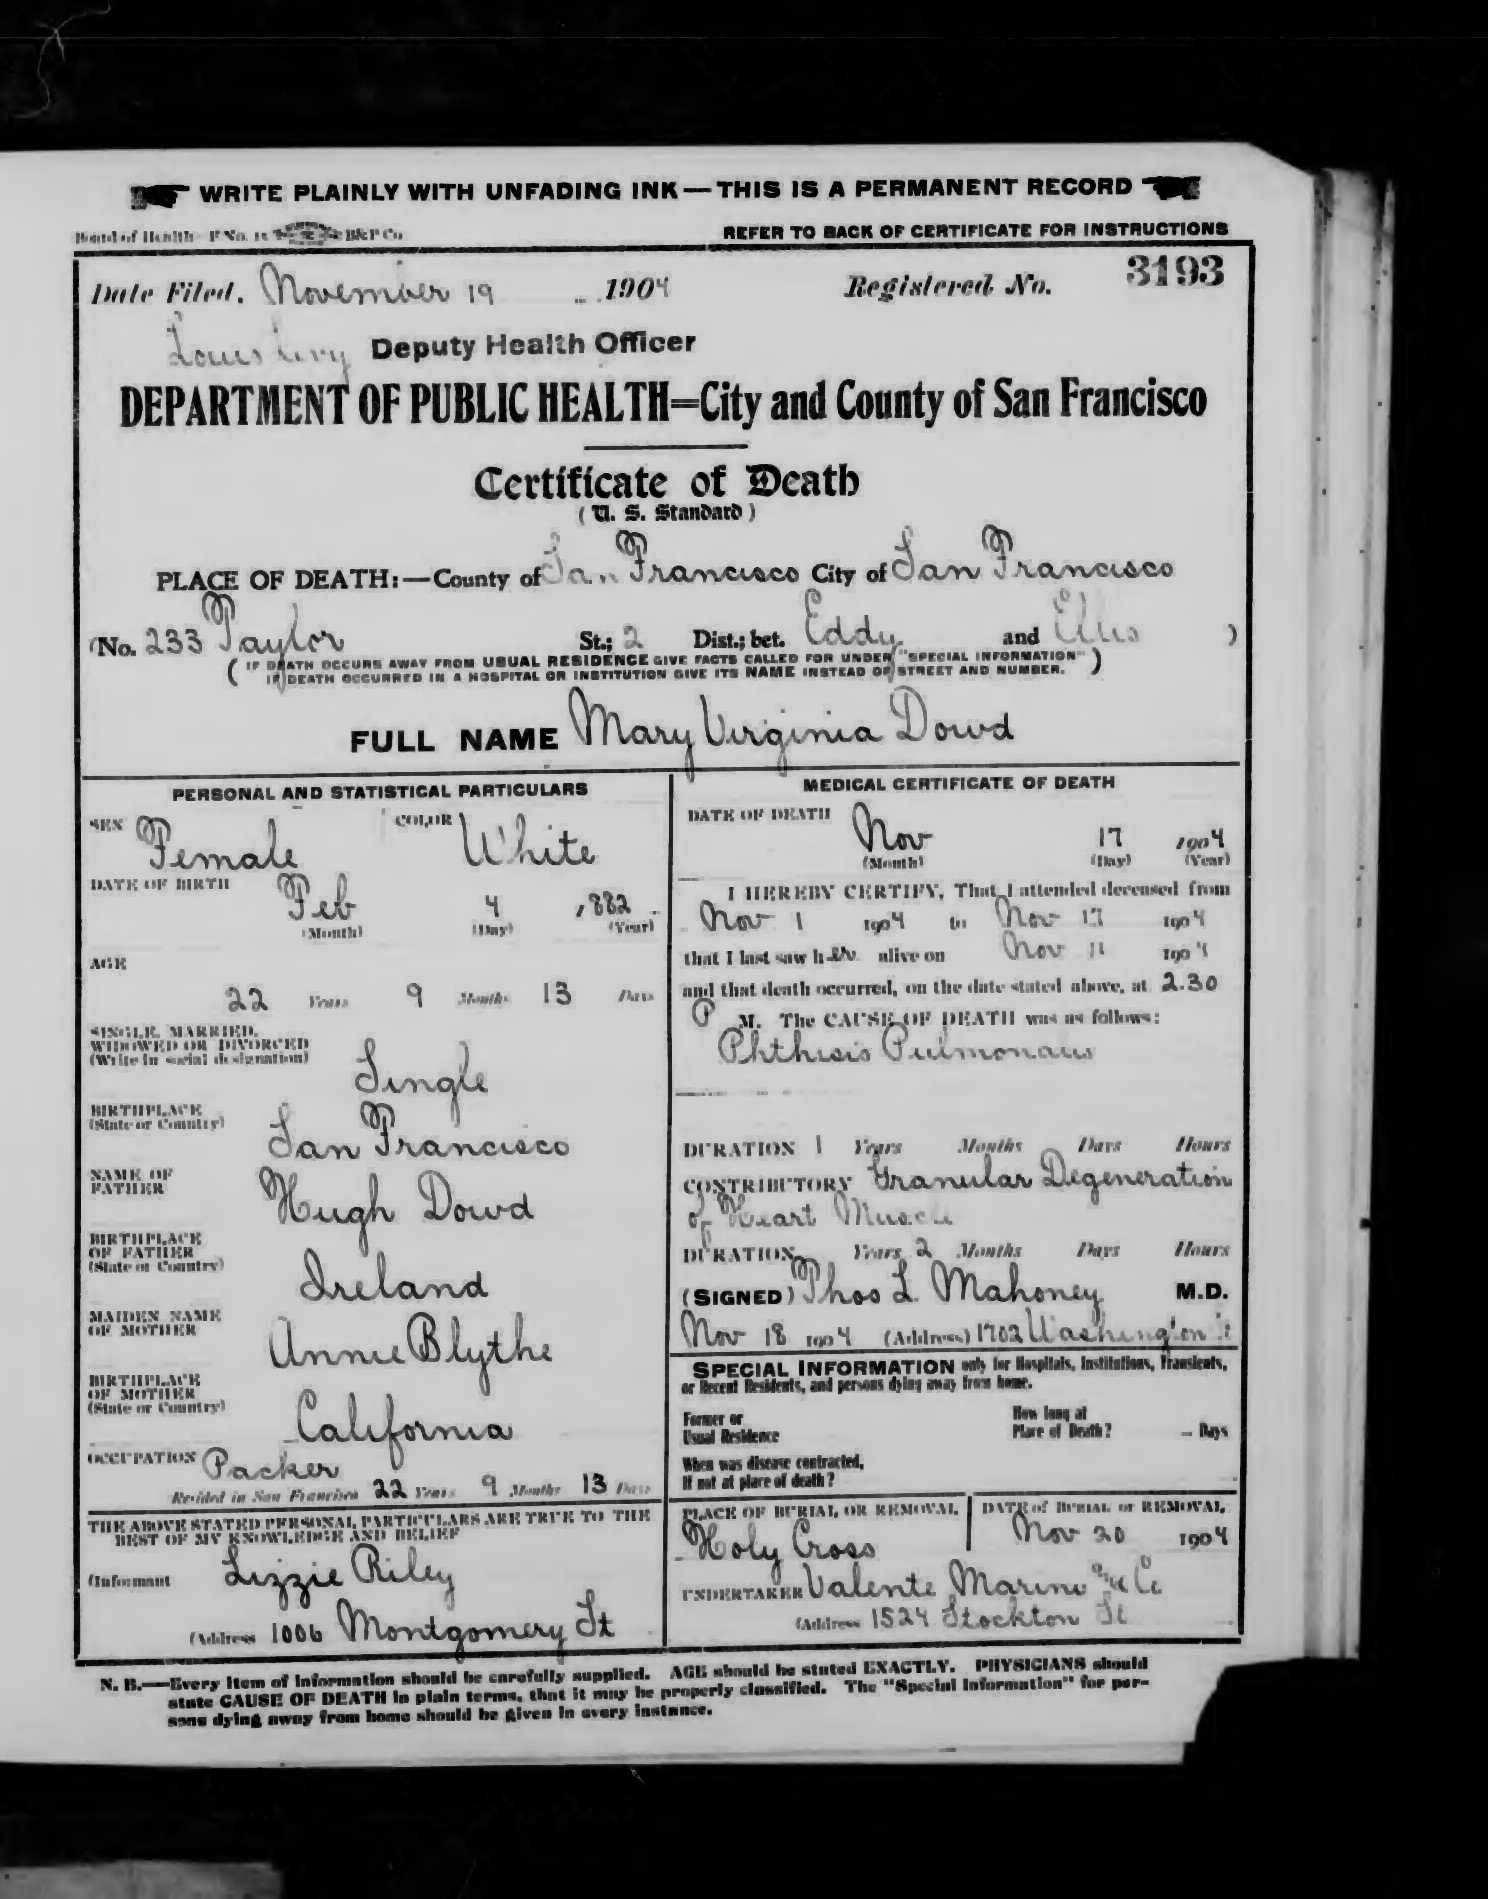 WRITE PLAINLY WITH UNFADING INK — THIS IS A PERMANENT RECORD
Board of Health F No. B&P Co
REFER TO BACK OF CERTIFICATE FOR INSTRUCTIONS
Date Filed, November 19 1904 Registered No. 3193
Louis Levy Deputy Health Officer
DEPARTMENT OF PUBLIC HEALTH=City and County of San Francisco
Certificate of Death
(U. S. Standard)
PLACE OF DEATH:—County of San Francisco City of San Francisco
(No. 233 Taylor St.; 2 Dist.; bet. Eddy and Ellis )
( IF DEATH OCCURS AWAY FROM USUAL RESIDENCE GIVE FACTS CALLED FOR UNDER "SPECIAL INFORMATION"
IF DEATH OCCURRED IN A HOSPITAL OR INSTITUTION GIVE ITS NAME INSTEAD OF STREET AND NUMBER. )
FULL NAME Mary Virginia Dowd
PERSONAL AND STATISTICAL PARTICULARS
SEX Female COLOR White
DATE OF BIRTH Feb 4 1882
(Month) (Day) (Year)
AGE
22 Years 9 Months 13 Days
SINGLE, MARRIED,
WIDOWED OR DIVORCED
(Write in social designation)
Single
BIRTHPLACE
(State or Country)
San Francisco
NAME OF
FATHER
Hugh Dowd
BIRTHPLACE
OF FATHER
(State or Country)
Ireland
MAIDEN NAME
OF MOTHER
Annie Blythe
BIRTHPLACE
OF MOTHER
(State or Country)
California
OCCUPATION Packer
Resided in San Francisco 22 Years 9 Months 13 Days
THE ABOVE STATED PERSONAL PARTICULARS ARE TRUE TO THE
BEST OF MY KNOWLEDGE AND BELIEF
(Informant Lizzie Riley
(Address 1006 Montgomery St
MEDICAL CERTIFICATE OF DEATH
DATE OF DEATH
Nov 17 1904
(Month) (Day) (Year)
I HEREBY CERTIFY, That I attended deceased from
Nov 1 1904 to Nov 17 1904
that I last saw her alive on Nov 11 1904
and that death occurred, on the date stated above, at 2.30
P M. The CAUSE OF DEATH was as follows:
Phthisis Pulmonalis
DURATION 1 Years Months Days Hours
CONTRIBUTORY Granular Degeneration
of Heart Muscle
DURATION Years 2 Months Days Hours
(SIGNED) Thos L. Mahoney M.D.
Nov 18 1904 (Address) 1702 Washington St
SPECIAL INFORMATION only for Hospitals, Institutions, Transients,
or Recent Residents, and persons dying away from home.
Former or
Usual Residence
How long at
Place of Death? Days
When was disease contracted,
If not at place of death?
PLACE OF BURIAL OR REMOVAL
Holy Cross
DATE of BURIAL or REMOVAL
Nov 20 1904
UNDERTAKER Valente Marini and Co
(Address 1524 Stockton St
N. B.—Every item of information should be carefully supplied. AGE should be stated EXACTLY. PHYSICIANS should
state CAUSE OF DEATH in plain terms, that it may be properly classified. The "Special Information" for per-
sons dying away from home should be given in every instance.